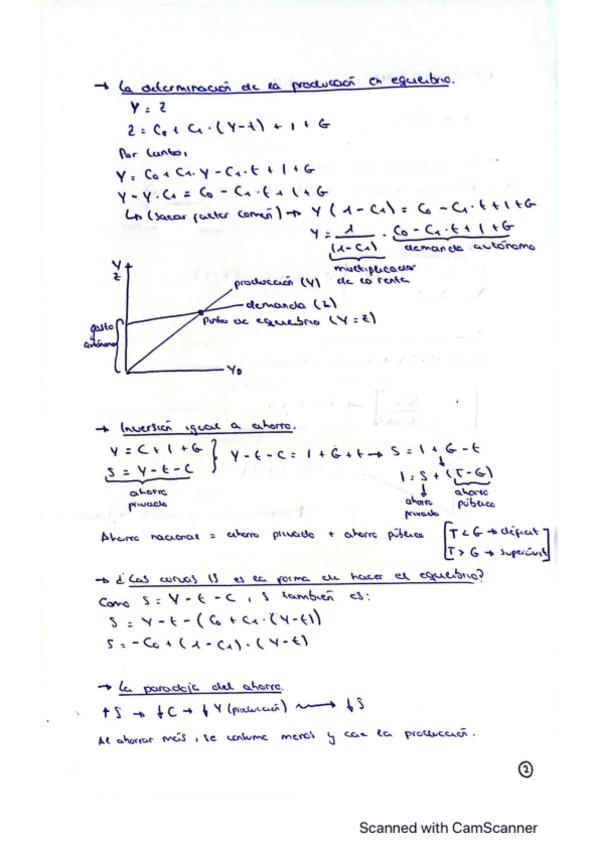 → La determinación de la producción en equilibrio.
Y = Z
Z = C₀ + C₁ · (Y-t) + I + G
Por tanto,
Y = C₀ + C₁ · Y - C₁ · t + I + G
Y - Y · C₁ = C₀ - C₁ · t + I + G
↳ (sacar factor común) → Y (1 - C₁) = C₀ - C₁ · t + I + G
Y = 1 / (1 - C₁) · C₀ - C₁ · t + I + G
multiplicador de la renta
demanda autónoma
Y
Z
producción (Y)
demanda (Z)
Punto de equilibrio (Y = Z)
gasto
autónomo
YD
→ Inversión igual a ahorro.
Y = C + I + G
S = Y - t - C
} Y - t - C = I + G + t → S = I + G - t
I = S + (T - G)
ahorro
privado
ahorro
privado
ahorro
público
Ahorro nacional = ahorro privado + ahorro público
[T < G → déficit]
[T > G → superávit]
→ ¿Las curvas IS es la forma de hacer el equilibrio?
Como S = Y - t - C, S también es:
S = Y - t - (C₀ + C₁ · (Y - t))
S = - C₀ + (1 - C₁) · (Y - t)
→ La paradoja del ahorro.
↑S → ↓C → ↓Y (producción) ⟿ ↓S
Al ahorrar más, se consume menos y cae la producción.
2
Scanned with CamScanner